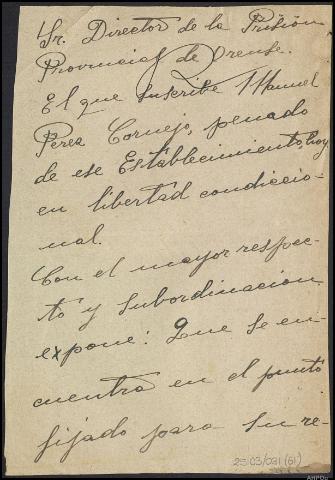 Sr. Director de la Prisión
Provincial de Orense.
El que suscribe Manuel
Perez Cornejo, penado
de ese Establecimiento, hoy
en libertad condiccio-
nal.
Con el mayor respec-
to y subordinacion
expone: Que se en-
cuentra en el punto
fijado para su re-
25/03/031 (61)
AHPOu